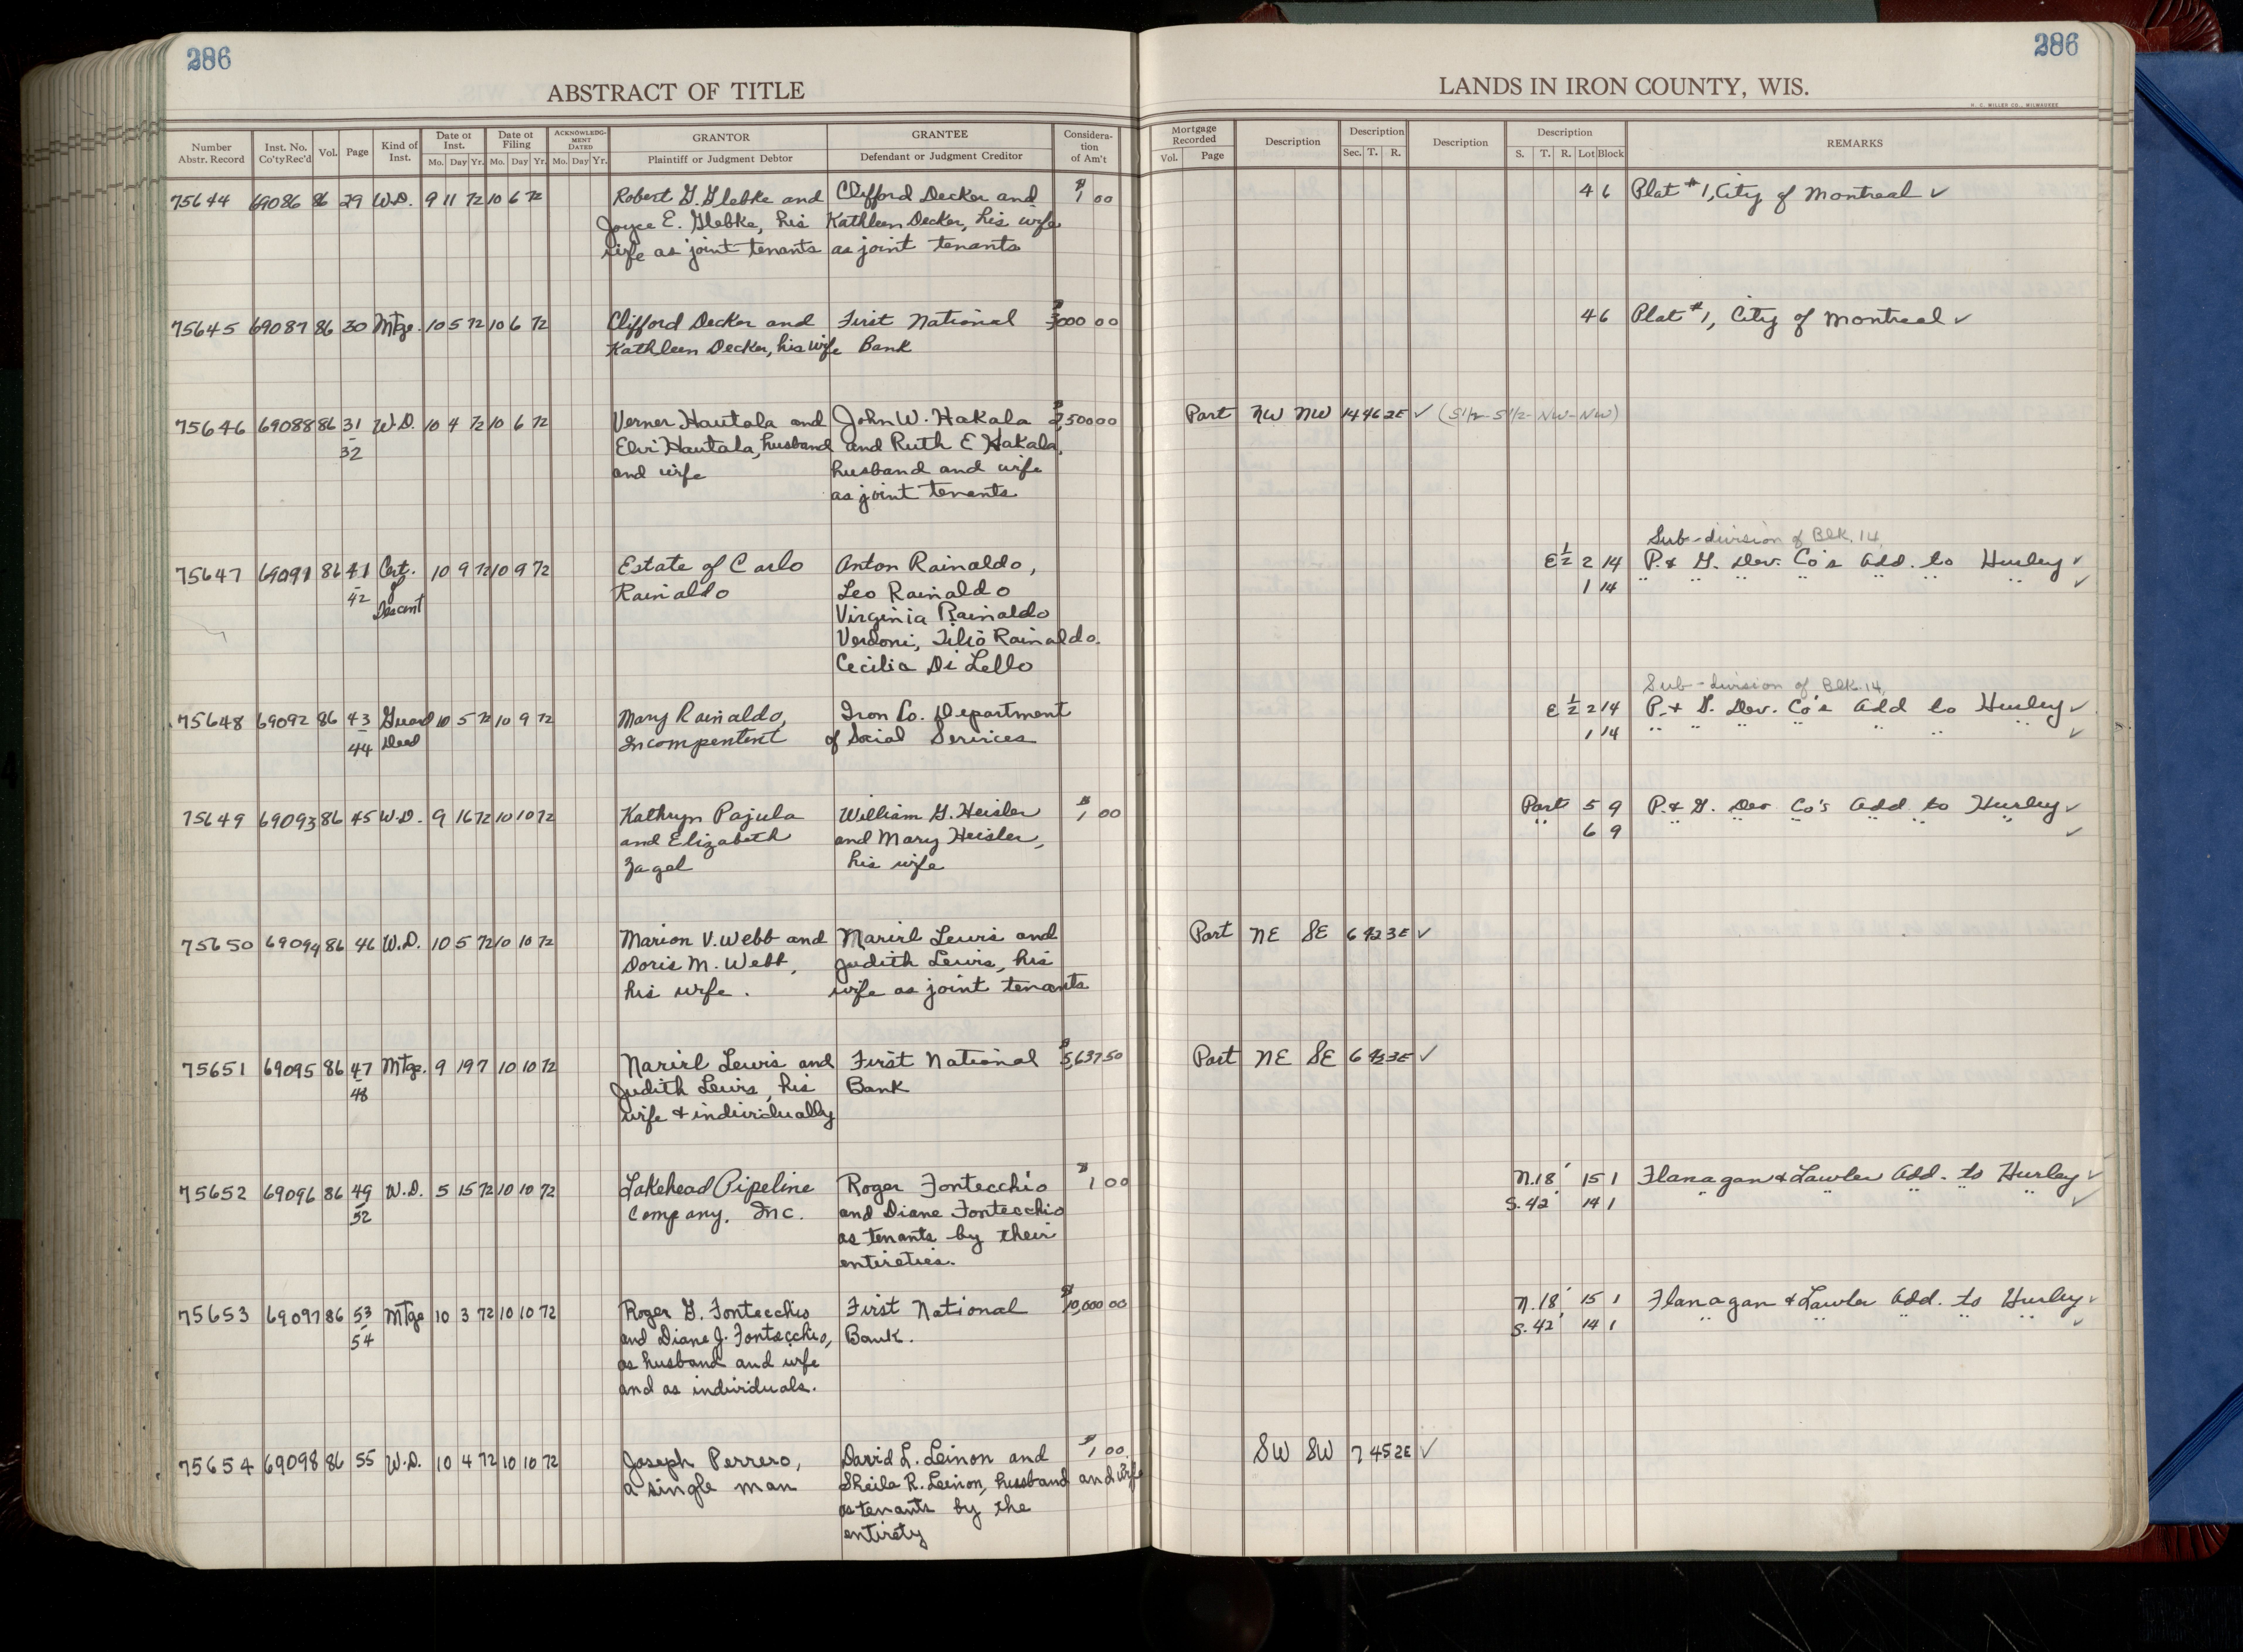 286
286
ABSTRACT OF TITLE
LANDS IN IRON COUNTY, WIS.
H. C. MILLER CO., MILWAUKEE
Number Abstr. Record Inst. No. Co'ty Rec'd Vol. Page Kind of Inst. Date of Inst. Mo. Day Yr. Date of Filing Mo. Day Yr. ACKNOWLEDGMENT DATED Mo. Day Yr. GRANTOR Plaintiff or Judgment Debtor GRANTEE Defendant or Judgment Creditor Consideration of Am't Mortgage Recorded Vol. Page Description Description Sec. T. R. Description Description S. T. R. Lot Block REMARKS
75644 69086 86 29 W.D. 9 11 72 10 6 72 Robert G. Glebke and Clifford Decker and $1 00 4 6 Plat #1, City of Montreal ✓
Joyce E. Glebke, his Kathleen Decker, his wife
wife as joint tenants as joint tenants
75645 69087 86 30 Mtge. 10 5 72 10 6 72 Clifford Decker and First National $3000 00 4 6 Plat #1, City of Montreal ✓
Kathleen Decker, his wife Bank
75646 69088 86 31 W.D. 10 4 72 10 6 72 Verner Hautala and John W. Hakala $2,500 00 Part NW NW 14 46 2E ✓ (S1/2-S1/2-NW-NW)
32 Elvi Hautala, husband and Ruth E Hakala,
and wife husband and wife
as joint tenants
Sub-division of Blk. 14,
75647 69091 86 41 Cert. 10 9 72 10 9 72 Estate of Carlo Anton Rainaldo, E 1/2 2 14 P. & G. Dev. Co's Add. to Hurley ✓
42 of Rainaldo Leo Rainaldo 1 14 " " " " " " " ✓
Descent Virginia Rainaldo
Verdoni, Tilio Rainaldo.
Cecilia Di Lello
Sub-division of Blk. 14,
75648 69092 86 43 Guard 10 5 72 10 9 72 Mary Rainaldo, Iron Co. Department E 1/2 2 14 P. & G. Dev. Co's Add to Hurley ✓
44 Deed Incompentent of Social Services 1 14 " " " " " " " ✓
75649 69093 86 45 W.D. 9 16 72 10 10 72 Kathryn Pajula William G. Heisler $1 00 Part 5 9 P. & G. Dev Co's Add to Hurley ✓
and Elizabeth and Mary Heisler, " 6 9 " " " " " " ✓
Zagel his wife
75650 69094 86 46 W.D. 10 5 72 10 10 72 Marion V. Webb and Narirl Lewis and Part NE SE 6 42 3E ✓
Doris M. Webb, Judith Lewis, his
his wife. wife as joint tenants
75651 69095 86 47 Mtge. 9 19 7 10 10 72 Narirl Lewis and First National $5,637 50 Part NE SE 6 42 3E ✓
48 Judith Lewis, his Bank
wife & individually
75652 69096 86 49 W.D. 5 15 72 10 10 72 Lakehead Pipeline Roger Fontecchio $1 00 N.18' 15 1 Flanagan & Lawler Add. to Hurley ✓
52 Company, Inc. and Diane Fontecchio S. 42' 14 1 " " " " " ✓
as tenants by their
entireties.
75653 69097 86 53 Mtge 10 3 72 10 10 72 Roger G. Fontecchio First National $10,000 00 N.18' 15 1 Flanagan & Lawler Add. to Hurley ✓
54 and Diane J. Fontecchio, Bank. S. 42' 14 1 " " " " " ✓
as husband and wife
and as individuals.
75654 69098 86 55 W.D. 10 4 72 10 10 72 Joseph Perrero, David L. Leinon and $1 00 SW SW 7 45 2E ✓
a single man Sheila R. Leinon, husband and wife
as tenants by the
entirety